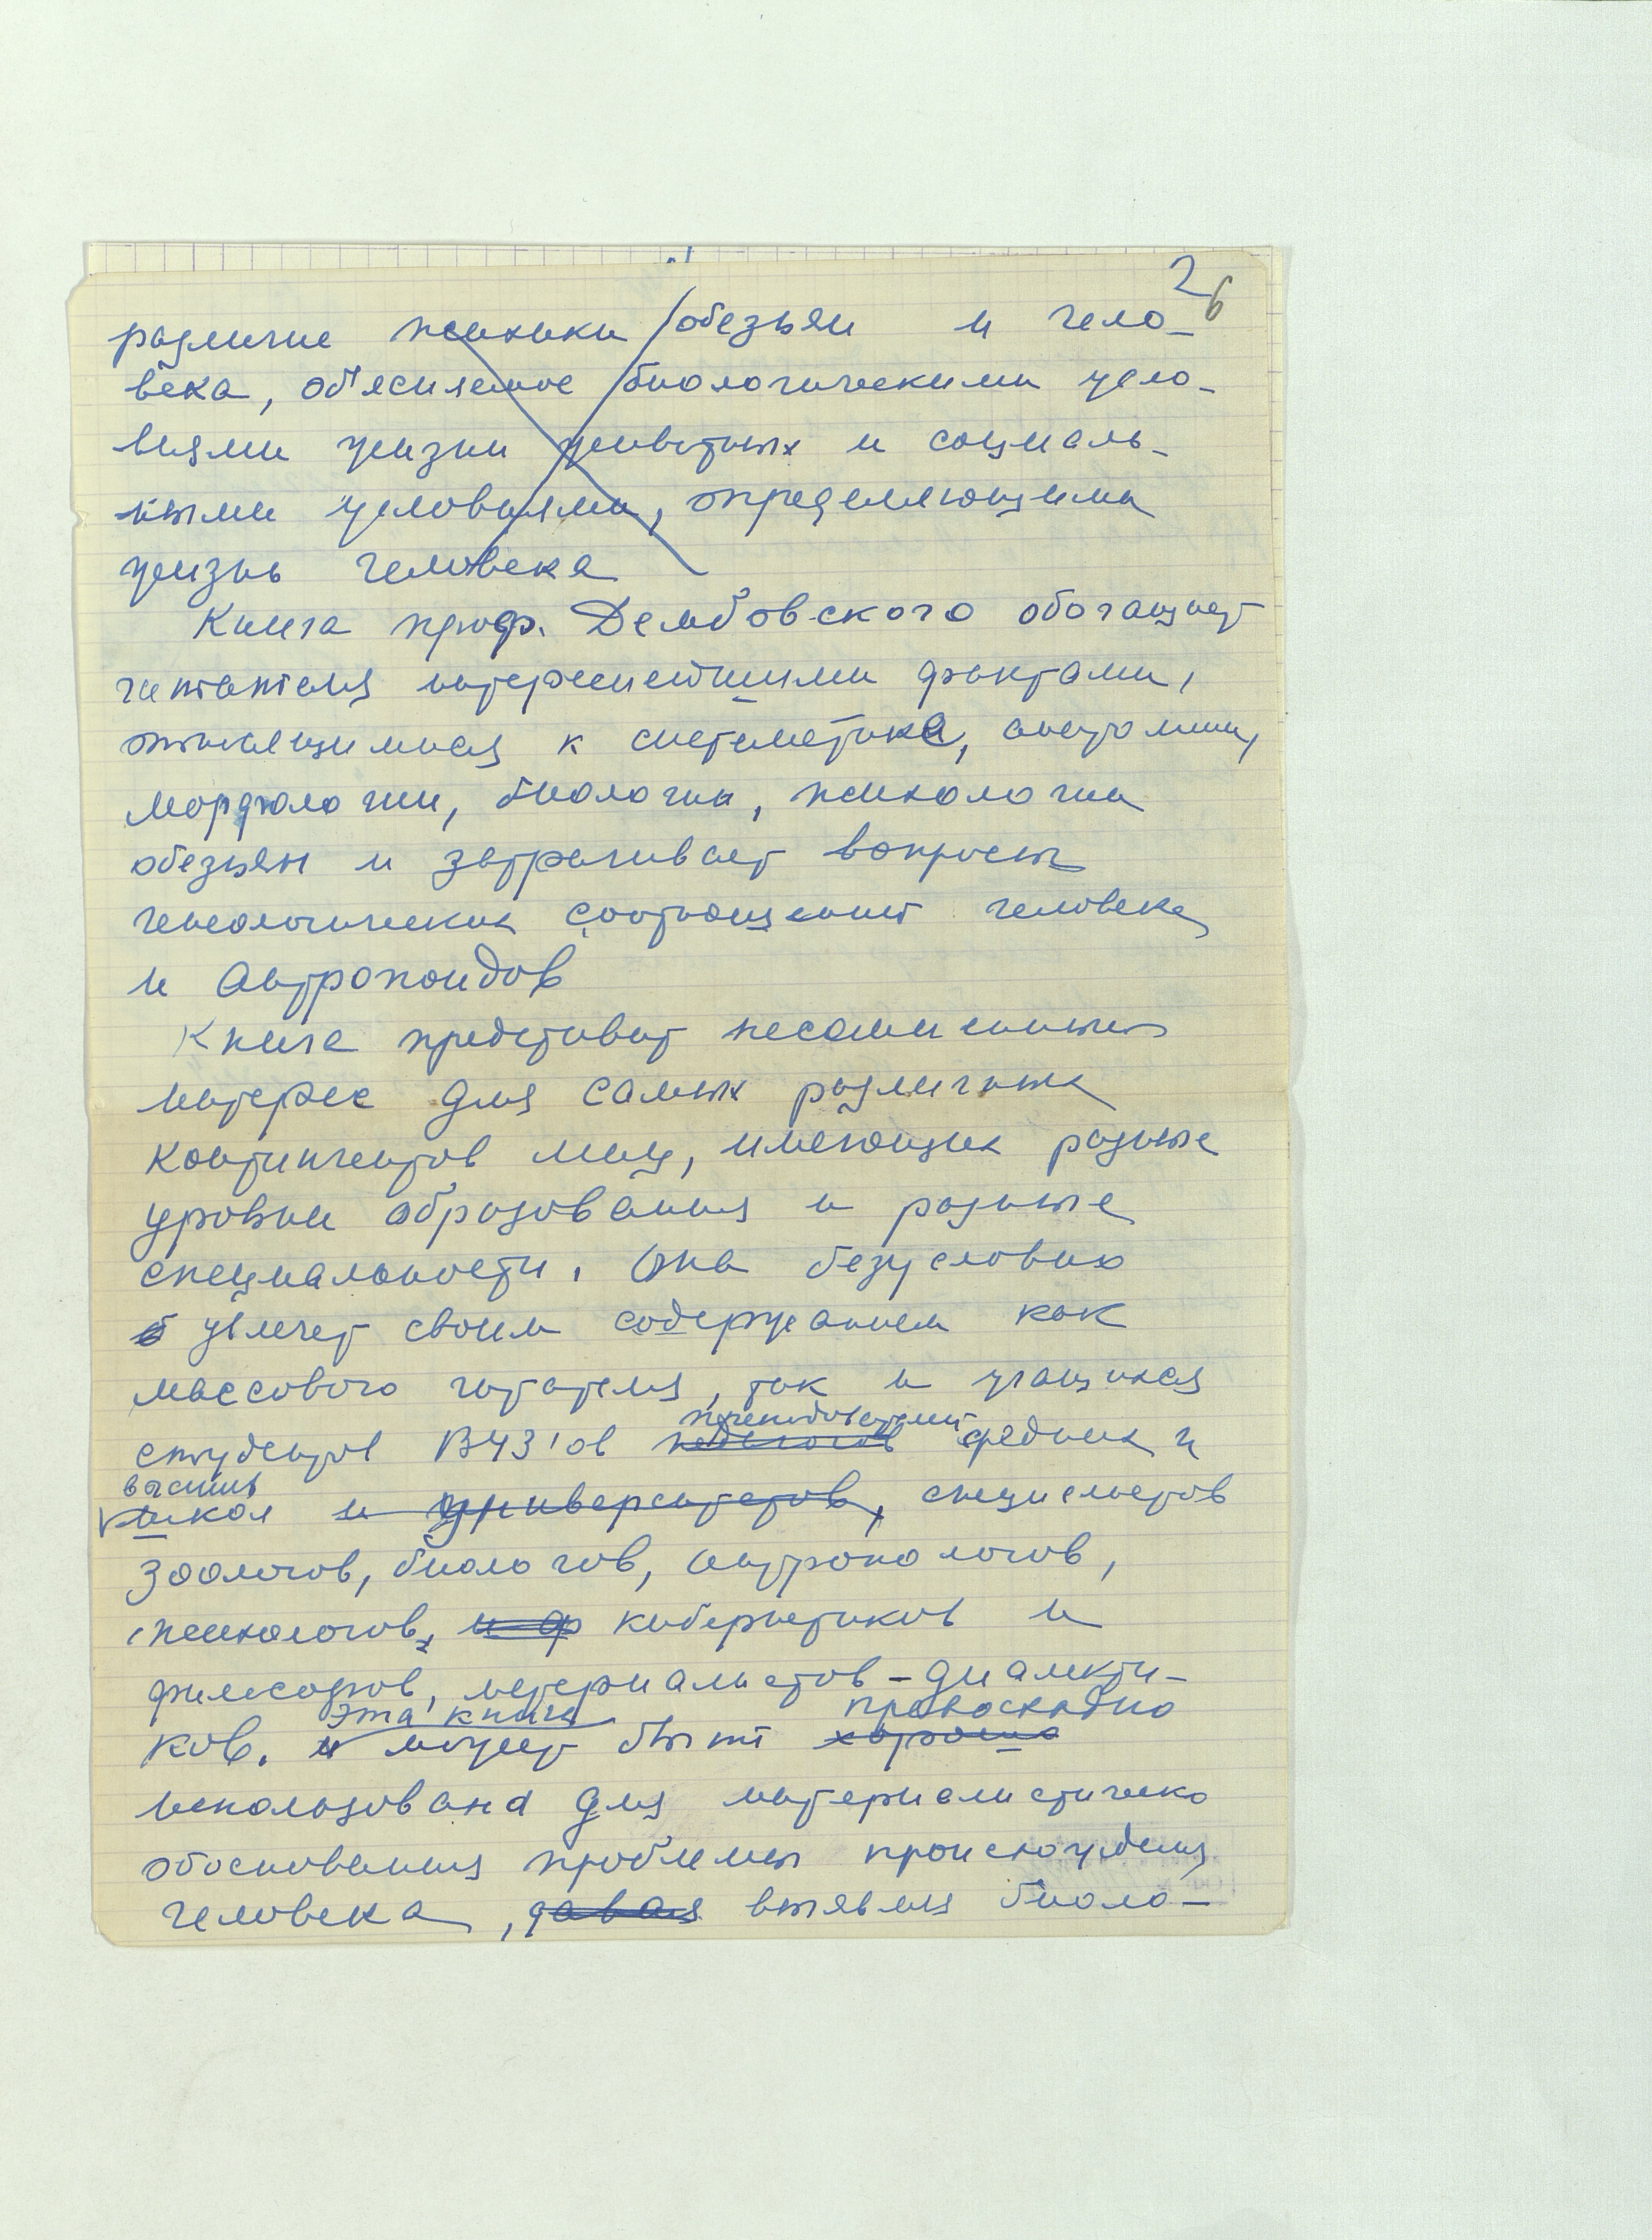 2
6
различие психики обезьян и чело-
века, об'ясняемое биологическими усло-
виями жизни животных и социаль-
ными условиями, определяющими
жизнь человека
Книга проф. Дембовского обогащает
читателя интереснейшими фактами,
относящимися к систематике, анатомии,
морфологии, биологии, психологии
обезьян и затрагивает вопросы
генеалогических соотношений человека
и антропоидов
Книга представит несомненный
интерес для самых различных
контингентов лиц, имеющих разные
уровни образования и разные
специальности. Она безусловно
увлечет своим содержанием как
массового читателя, так и учащихся
преподавателей
студентов ВУЗ'ов педагогов средних и
высших
школ и университетов, специалистов
зоологов, биологов, антропологов,
психологов, и ф кибернетиков и
философов, материалистов-диалекти-
Эта книга превосходно
ков. и может быть хорошо
использована для материалистическо
обоснования проблемы происхождения
человека, давая выявляя биоло-